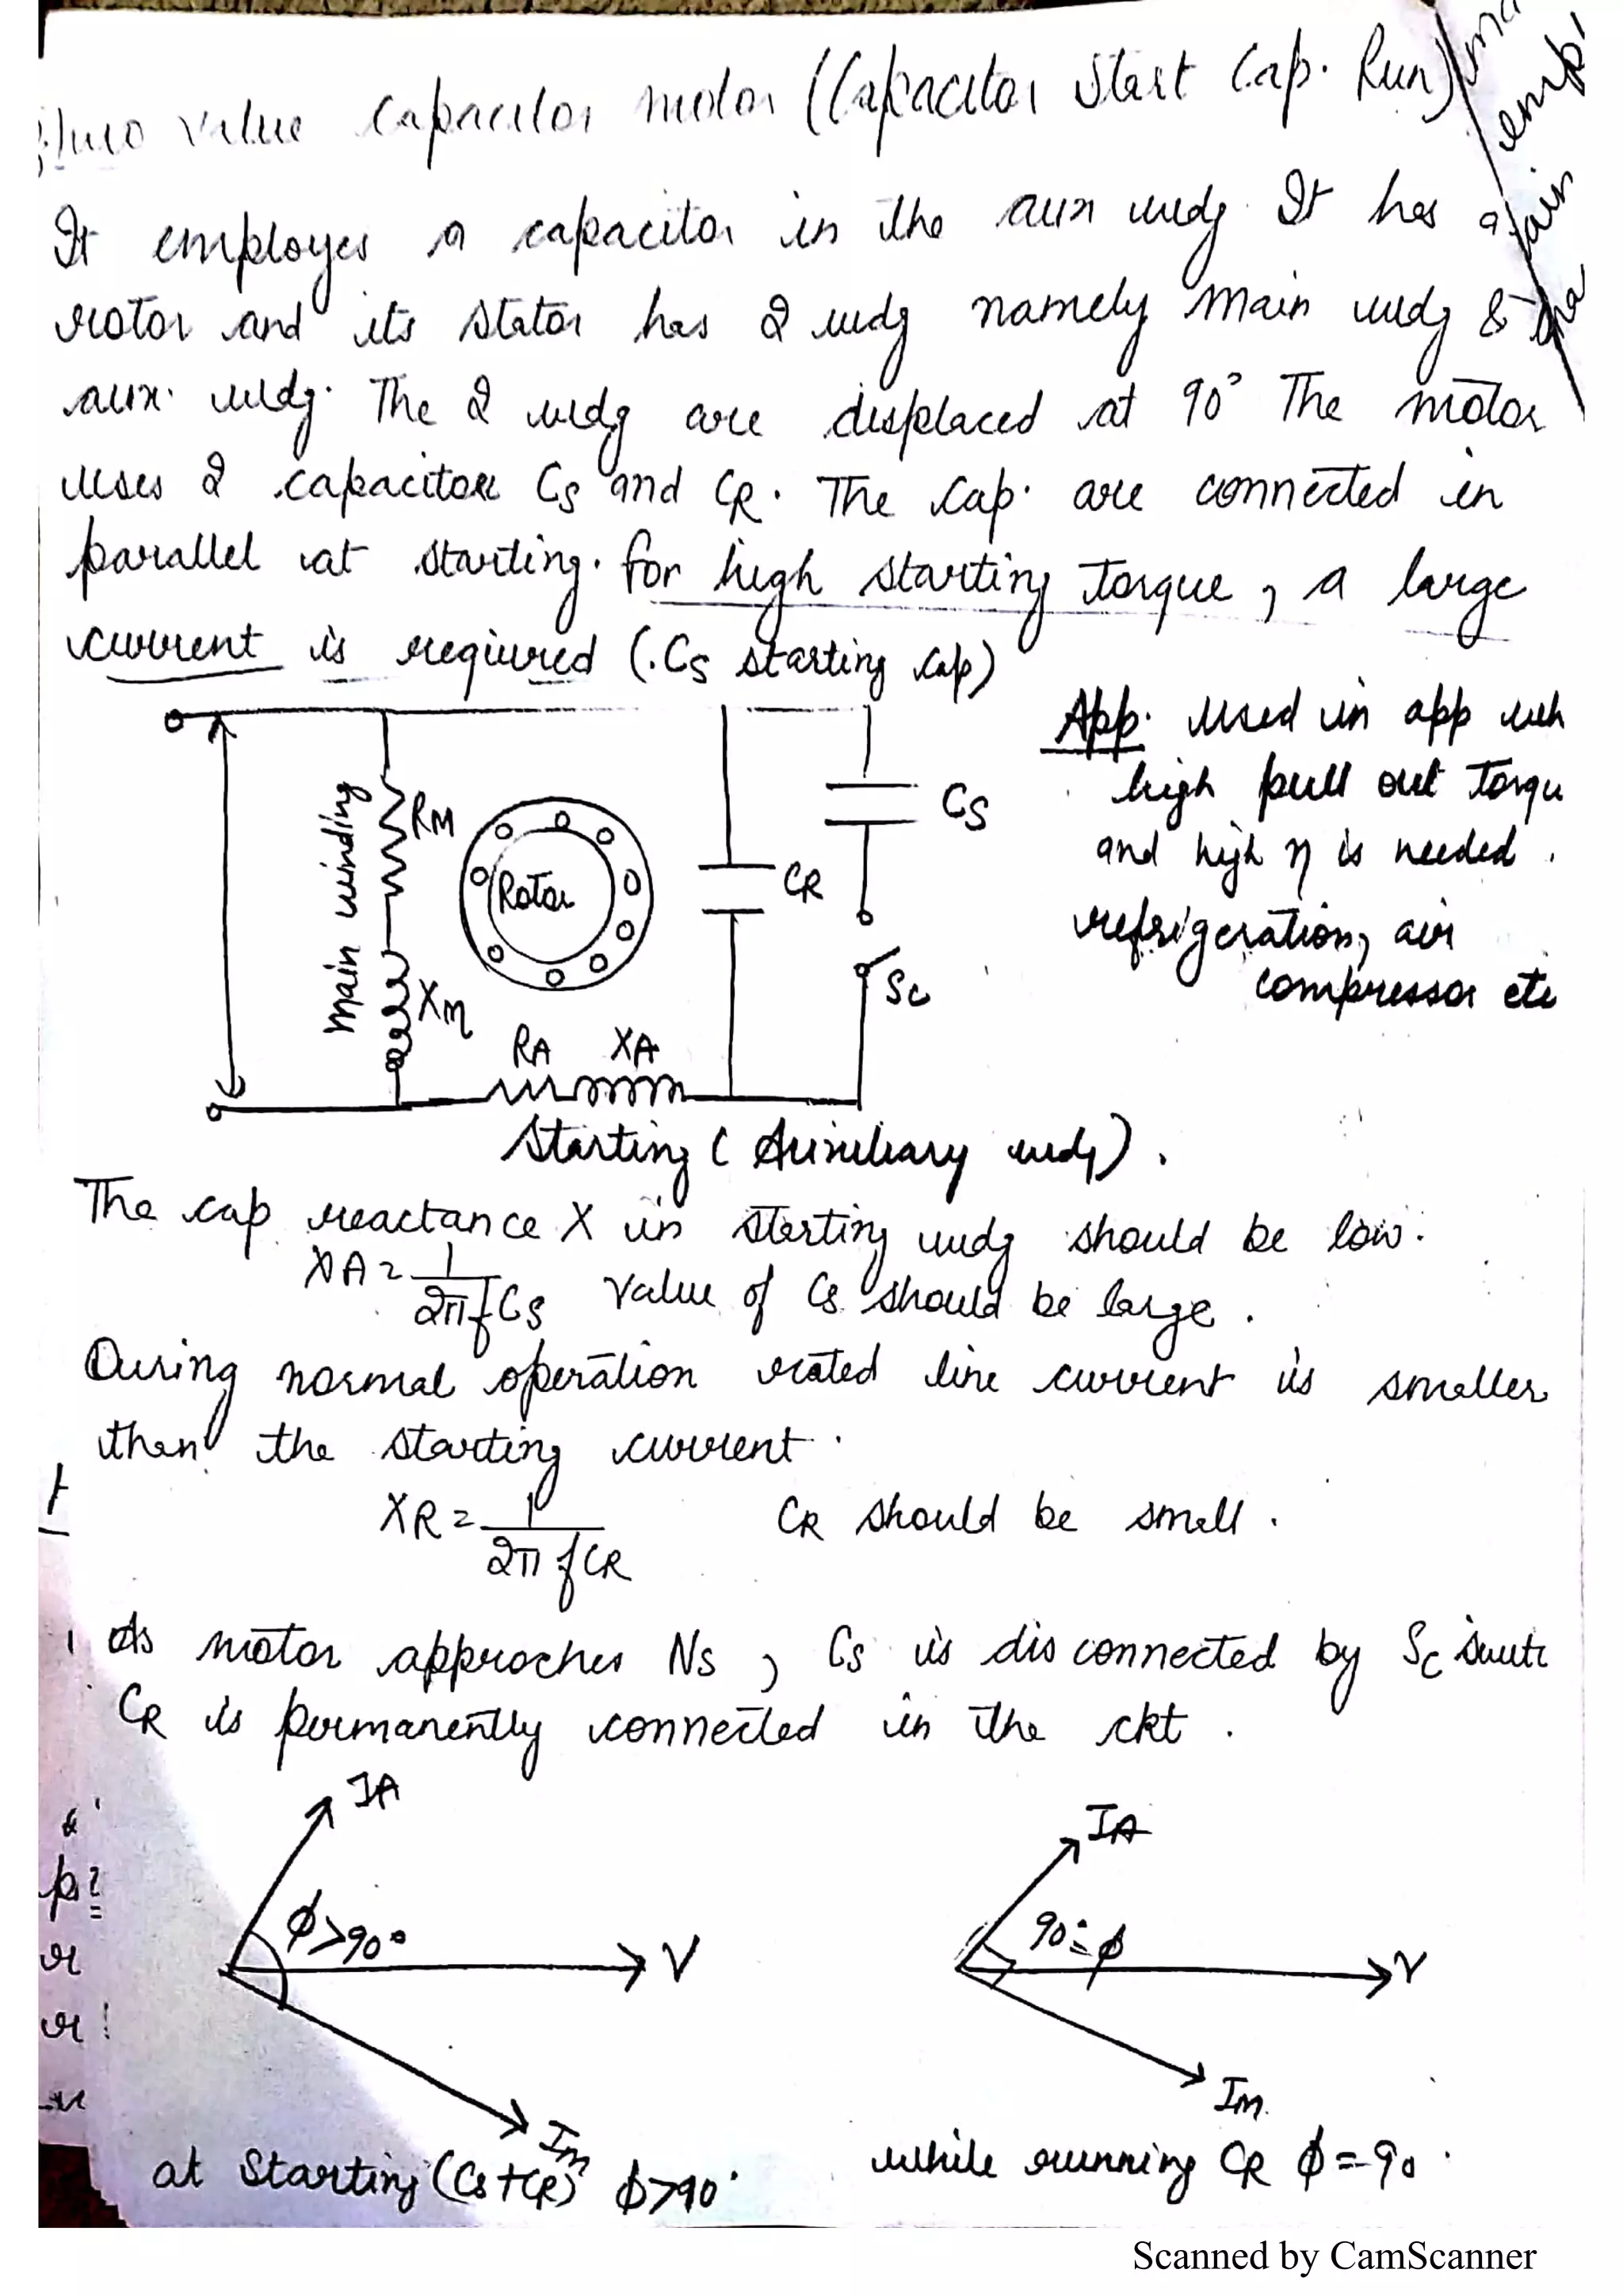 Two value Capacitor motor (Capacitor Start Cap. Run)
It employes a capacitor in the aux wdg. It has a
rotor and its stator has 2 wdg namely main wdg &
aux. wdg. The 2 wdg are displaced at 90° The motor
uses 2 capacitor Cs and CR. The cap. are connected in
parallel at starting. for high starting torque, a large
current is required (.Cs starting cap)
App. Used in app wh
high pull out torqu
and high η is needed.
refrigeration, air
compressor etc
main winding
RM
XM
Rotor
CR
Cs
Sc
RA XA
Starting (Auxiliary wdg).
The cap reactance X in starting wdg should be low.
XA = 1/2πfCs Value of Cs should be large.
During normal operation rated line current is smaller
then the starting current.
XR = 1/2πfCR CR should be small.
As motor approches Ns, Cs is disconnected by Sc
CR is permanently connected in the ckt.
IA
ϕ>90°
V
Im
at Starting (Cs+CR) ϕ>90°
IA
90°=ϕ
V
Im
while running CR ϕ=90
Scanned by CamScanner